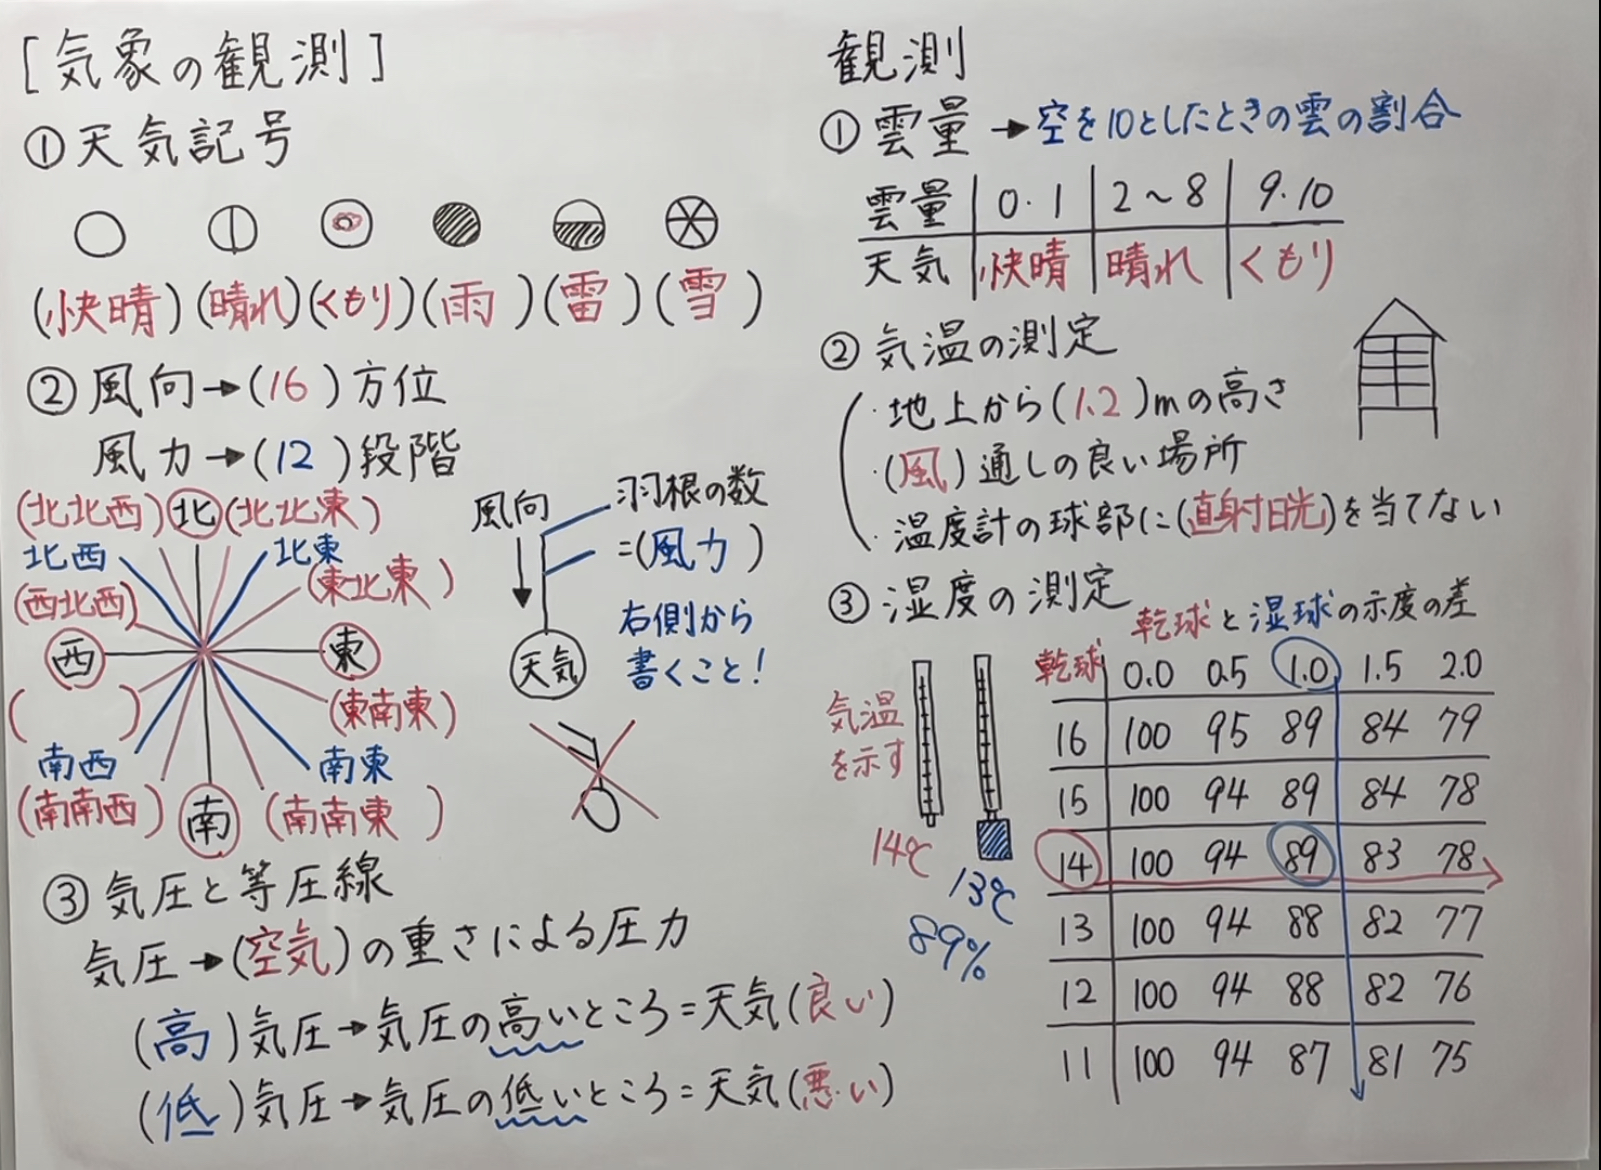 [気象の観測]
①天気記号
(快晴)(晴れ)(くもり)(雨)(雷)(雪)
②風向→(16)方位
風力→(12)段階
(北北西)北(北北東)
北西 北東
(西北西) (東北東)
西 東
( ) (東南東)
南西 南東
(南南西)南(南南東)
風向 羽根の数
=(風力)
天気
右側から
書くこと!
③気圧と等圧線
気圧→(空気)の重さによる圧力
(高)気圧→気圧の高いところ=天気(良い)
(低)気圧→気圧の低いところ=天気(悪い)
観測
①雲量→空を10としたときの雲の割合
雲量 0.1 2〜8 9.10
天気 快晴 晴れ くもり
②気温の測定
・地上から(1.2)mの高さ
・(風)通しの良い場所
・温度計の球部に(直射日光)を当てない
③湿度の測定
気温
を示す
14℃
13℃
89%
乾球と湿球の示度の差
乾球 0.0 0.5 1.0 1.5 2.0
16 100 95 89 84 79
15 100 94 89 84 78
14 100 94 89 83 78
13 100 94 88 82 77
12 100 94 88 82 76
11 100 94 87 81 75